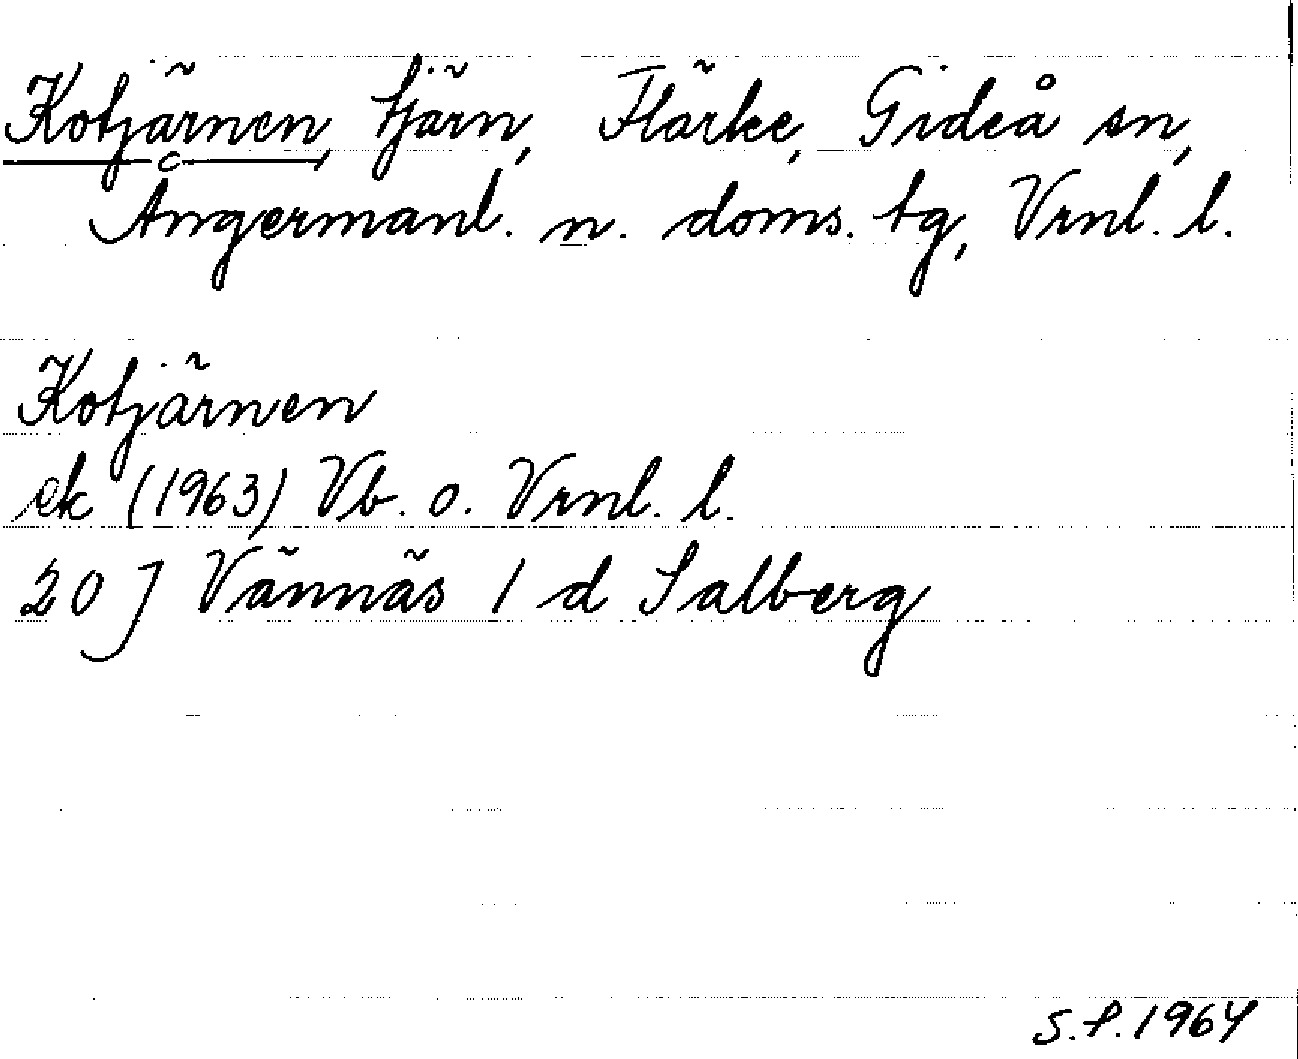 Kotjärnen, tjärn, Flärke, Gideå sn,
Ångermanl. n. doms. tg, Vrnl. l.
Kotjärnen
ek (1963) Vb. o. Vrnl. l.
20 J Vännäs 1 d Salberg
S.P. 1964